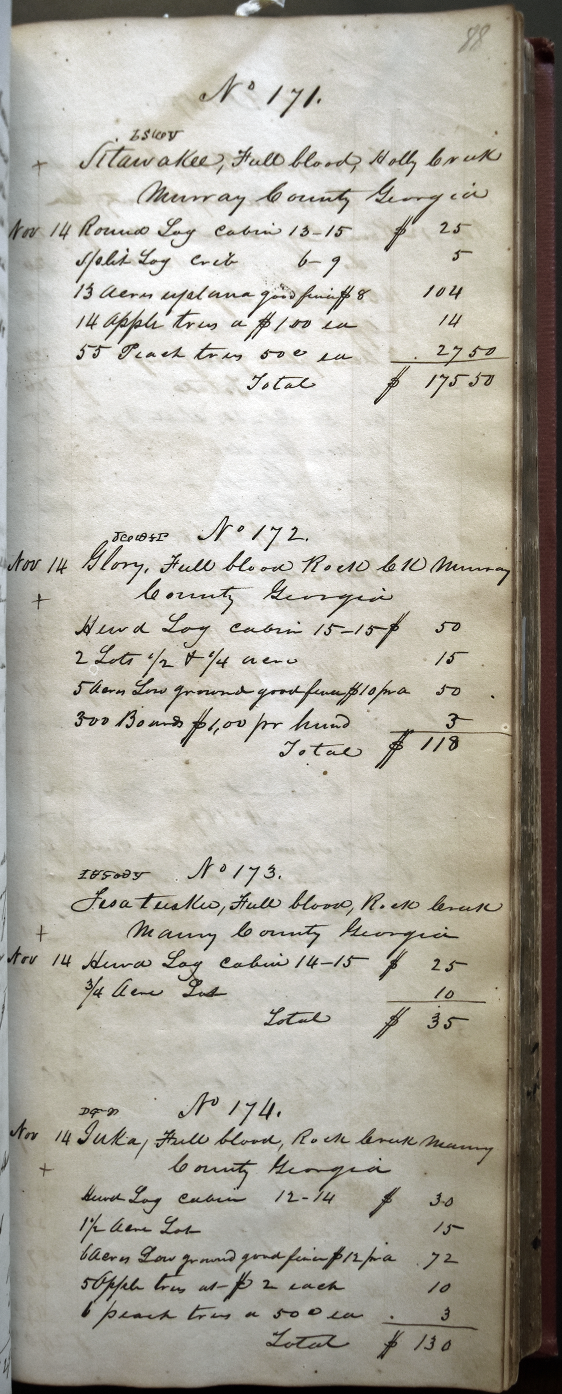 88
No 171.
Sitawakee, Full blood, Holly Creek
Murray County Georgia
Nov 14 Round Log cabin 13-15 $ 25
split Log crib 6-9 5
13 Acres upland good fence $8 104
14 Apple trees a $1.00 ea 14
55 Peach trees 50c ea 27 50
Total $ 175 50
No 172.
Nov 14 Glory, Full blood Rock Ck Murray
+ County Georgia
Hewd Log cabin 15-15 $ 50
2 Lots 1/2 & 1/4 acre 15
5 Acres Low ground good fence $10 pr a 50
300 Boards $1,00 pr hund 3
Total $ 118
No 173.
Full blood, Rock Creek
+ Murry County Georgia
Nov 14 Hewd Log cabin 14-15 $ 25
3/4 Acre Lot 10
Total $ 35
No 174.
Nov 14 Inka, Full blood, Rock Creek Murry
+ County Georgia
Hewd Log cabin 12-14 $ 30
1 1/2 Acre Lot 15
6 Acres Low ground good fence $12 pr a 72
5 Apple trees at $2 each 10
6 peach trees a 50c ea 3
Total $ 130